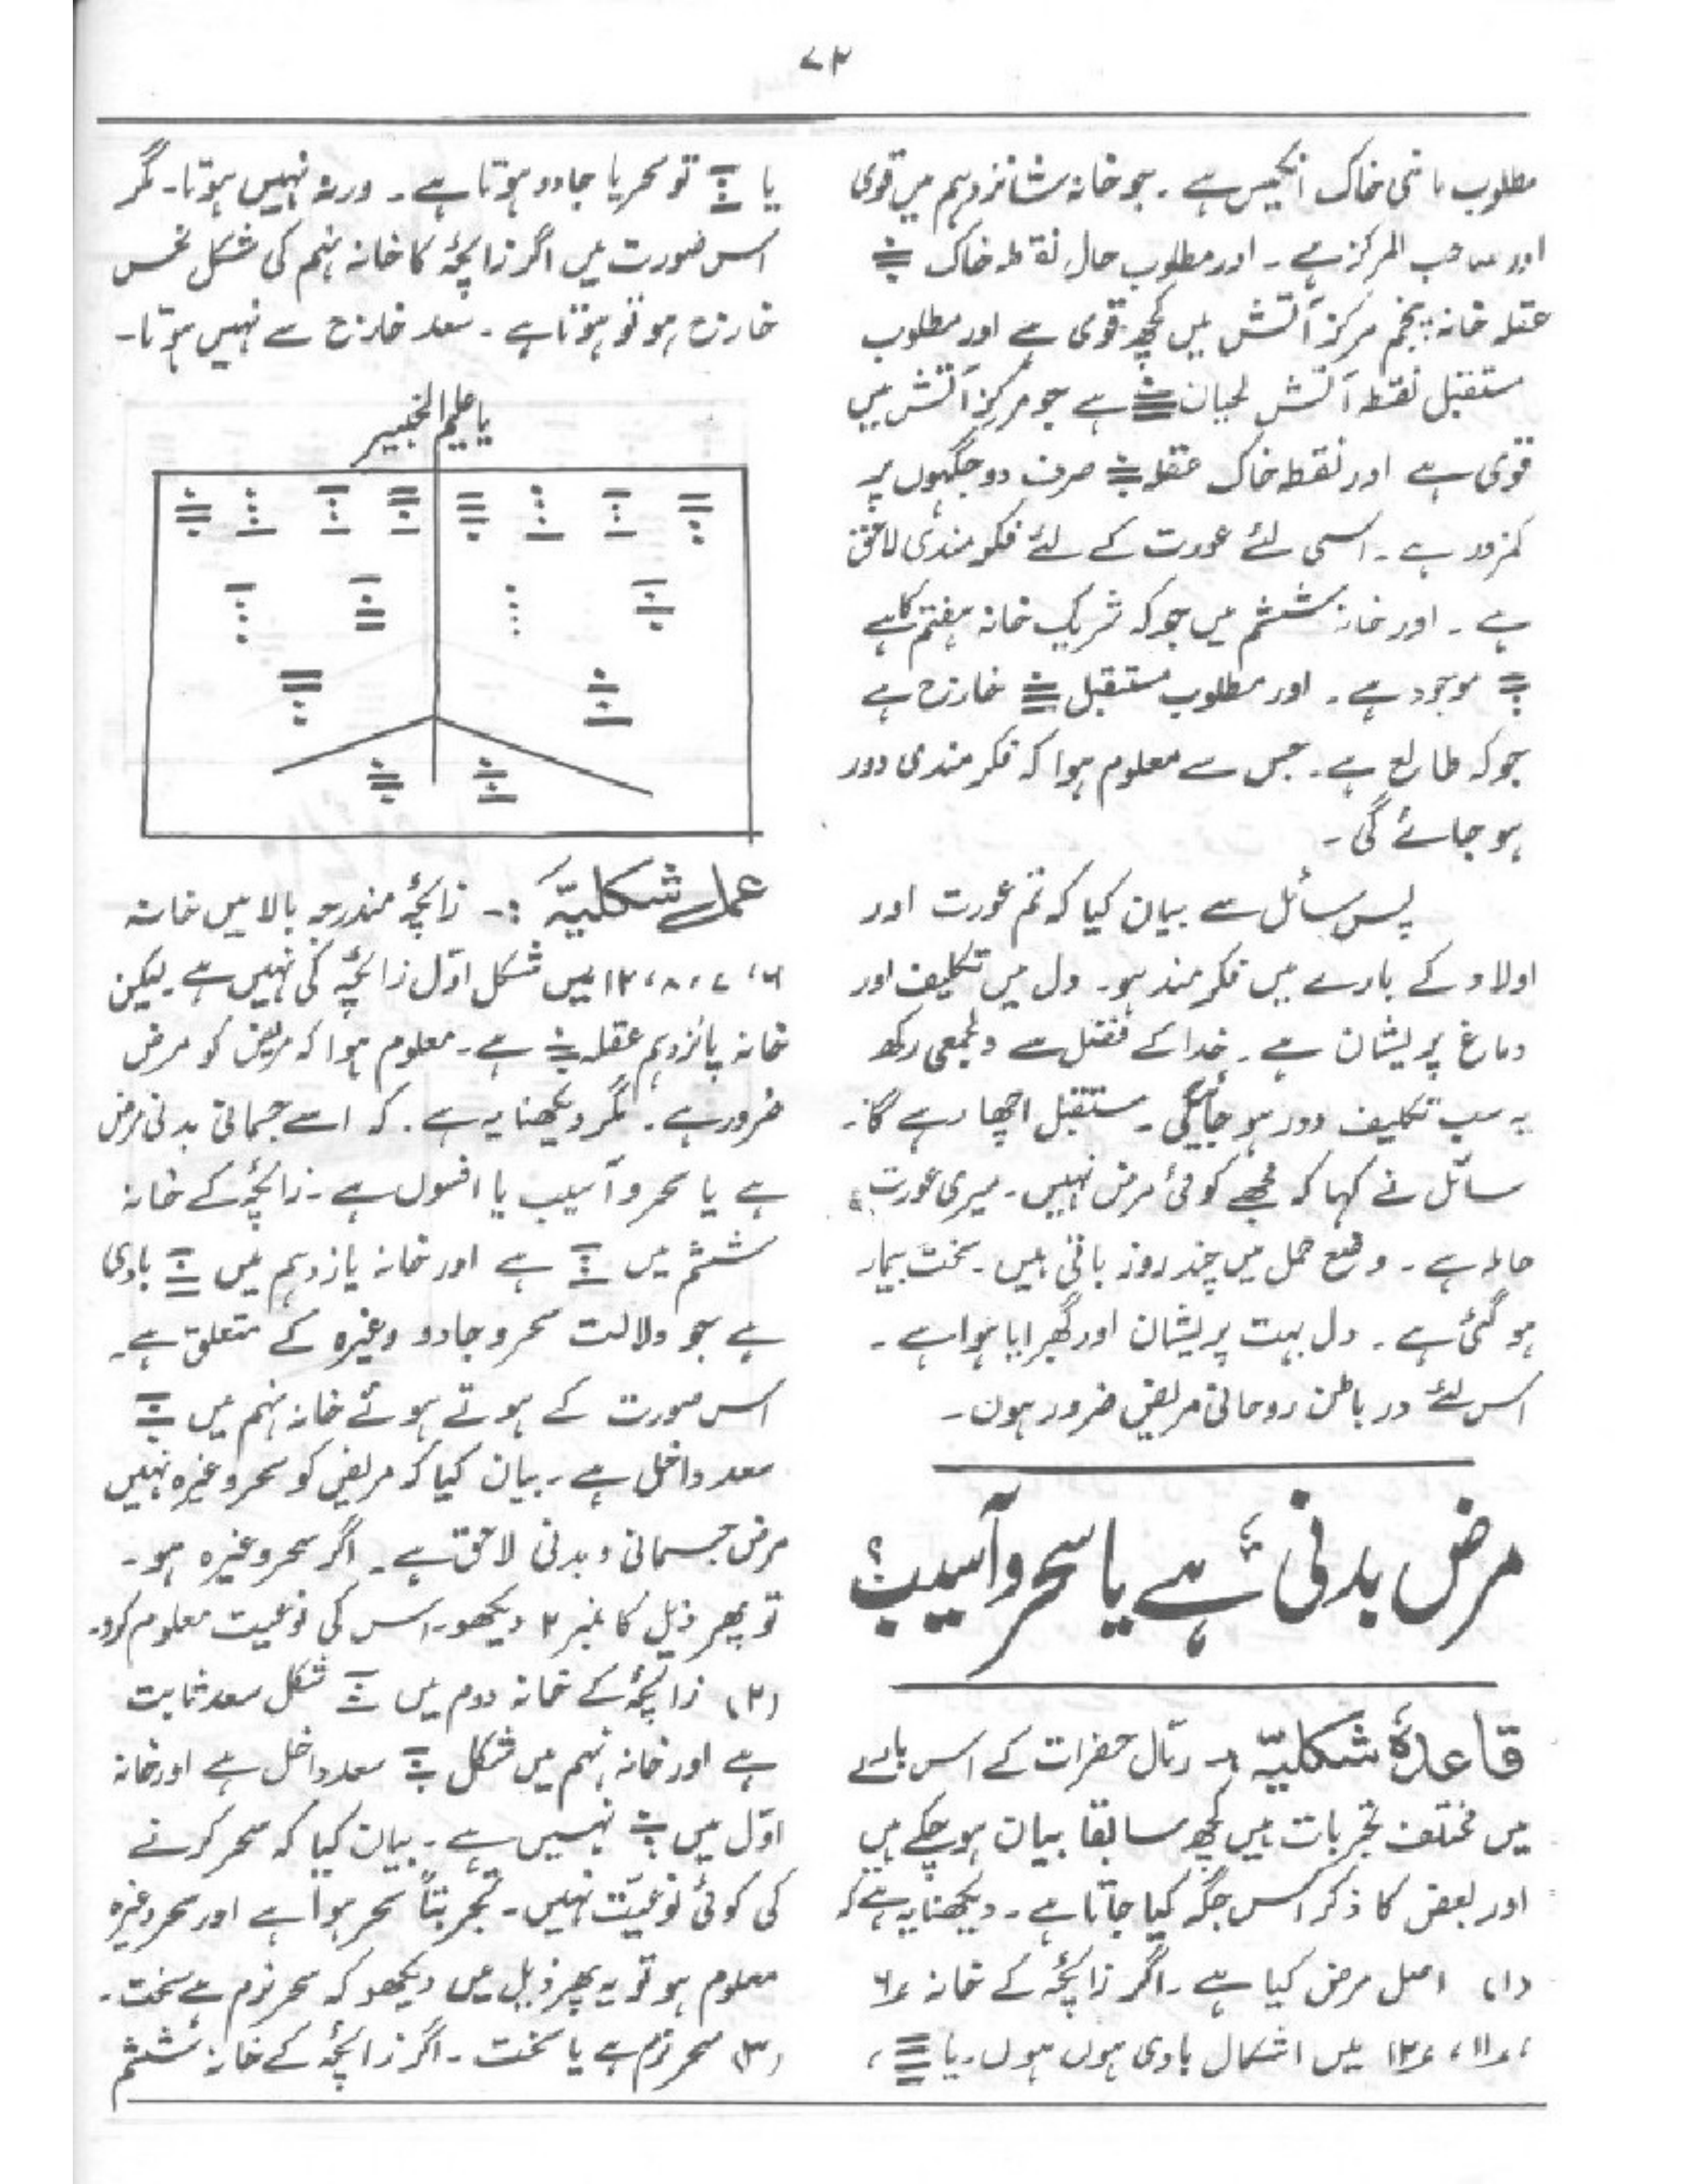 ۷۳
مطلوب ماضی خاک انکیس ہے ۔ جو خانہ شانزدہم میں قوی
اور صاحب المرکز ہے ۔ اور مطلوب حال نقطہ خاک
عقلہ خانہ پنجم مرکز آتش میں کچھ قوی ہے اور مطلوب
مستقبل نقطہ آتش لحیان ہے جو مرکز آتش میں
قوی ہے اور نقطہ خاک عقلہ صرف دو جگہوں پر
کمزور ہے ۔ اسی لئے عورت کے لئے فکر مندی لاحق
ہے ۔ اور خانہ ششم میں جو کہ شریک خانہ ہفتم کا ہے
موجود ہے ۔ اور مطلوب مستقبل خارج ہے
جو کہ طالع ہے ۔ جس سے معلوم ہوا کہ فکر مندی دور
ہو جائے گی ۔
پس سائل سے بیان کیا کہ تم عورت اور
اولاد کے بارے میں فکر مند ہو۔ دل میں تکلیف اور
دماغ پریشان ہے ۔ خدا کے فضل سے دلجمعی رکھ
یہ سب تکلیف دور ہو جائیگی ۔ مستقبل اچھا رہے گا ۔
سائل نے کہا کہ مجھے کوئی مرض نہیں ۔ میری عورت
حاملہ ہے ۔ وضع حمل میں چند روز باقی ہیں ۔ سخت بیمار
ہو گئی ہے ۔ دل بہت پریشان اور گھبرایا ہوا ہے ۔
اس لئے در باطن روحانی مریض ضرور ہوں ۔
مرض بدنی ہے یا سحر و آسیب؟
قاعدۂ شکلیہ :۔ رمّال حضرات کے اس بارے
میں مختلف تجربات ہیں کچھ سابقا بیان ہو چکے ہیں
اور بعض کا ذکر اس جگہ کیا جاتا ہے ۔ دیکھنا یہ ہے کہ
(۱) اصل مرض کیا ہے ۔ اگر زائچہ کے خانہ ۶
، ۱۱ ، ۱۲ میں اشکال بادی ہوں ہوں ۔ یا ،
یا تو سحر یا جادو ہوتا ہے ۔ ورنہ نہیں ہوتا ۔ مگر
اس صورت میں اگر زائچہ کا خانہ نہم کی شکل نحس
خارج ہو تو ہوتا ہے ۔ سعد خارج سے نہیں ہوتا ۔
یا علیم الخبیر
عمل شکلیہ :۔ زائچہ مندرجہ بالا میں خانہ
۶، ۷، ۸، ۱۲ میں شکل اوّل زائچہ کی نہیں ہے لیکن
خانہ پانزدہم عقلہ ہے ۔ معلوم ہوا کہ مریض کو مرض
ضرور ہے ۔ مگر دیکھنا یہ ہے ۔ کہ اسے جسمانی بدنی مرض
ہے یا سحر و آسیب یا افسوں ہے ۔ زائچہ کے خانہ
ششم میں ہے اور خانہ یازدہم میں بادی
ہے جو دلالت سحر و جادو وغیرہ کے متعلق ہے ۔
اس صورت کے ہوتے ہوئے خانہ نہم میں
سعد داخل ہے ۔ بیان کیا کہ مریض کو سحر وغیرہ نہیں
مرض جسمانی و بدنی لاحق ہے ۔ اگر سحر وغیرہ ہو ۔
تو پھر ذیل کا نمبر ۲ دیکھو ۔ اس کی نوعیت معلوم کرو ۔
(۲) زائچہ کے خانہ دوم میں شکل سعد ثابت
ہے اور خانہ نہم میں شکل سعد داخل ہے اور خانہ
اوّل میں نہیں ہے ۔ بیان کیا کہ سحر کرنے
کی کوئی نوعیّت نہیں ۔ تجربتاً سحر ہوا ہے اور سحر وغیرہ
معلوم ہو تو یہ پھر ذیل میں دیکھو کہ سحر نرم ہے سخت ۔
(۳) سحر نرم ہے یا سخت ۔ اگر زائچہ کے خانہ ششم